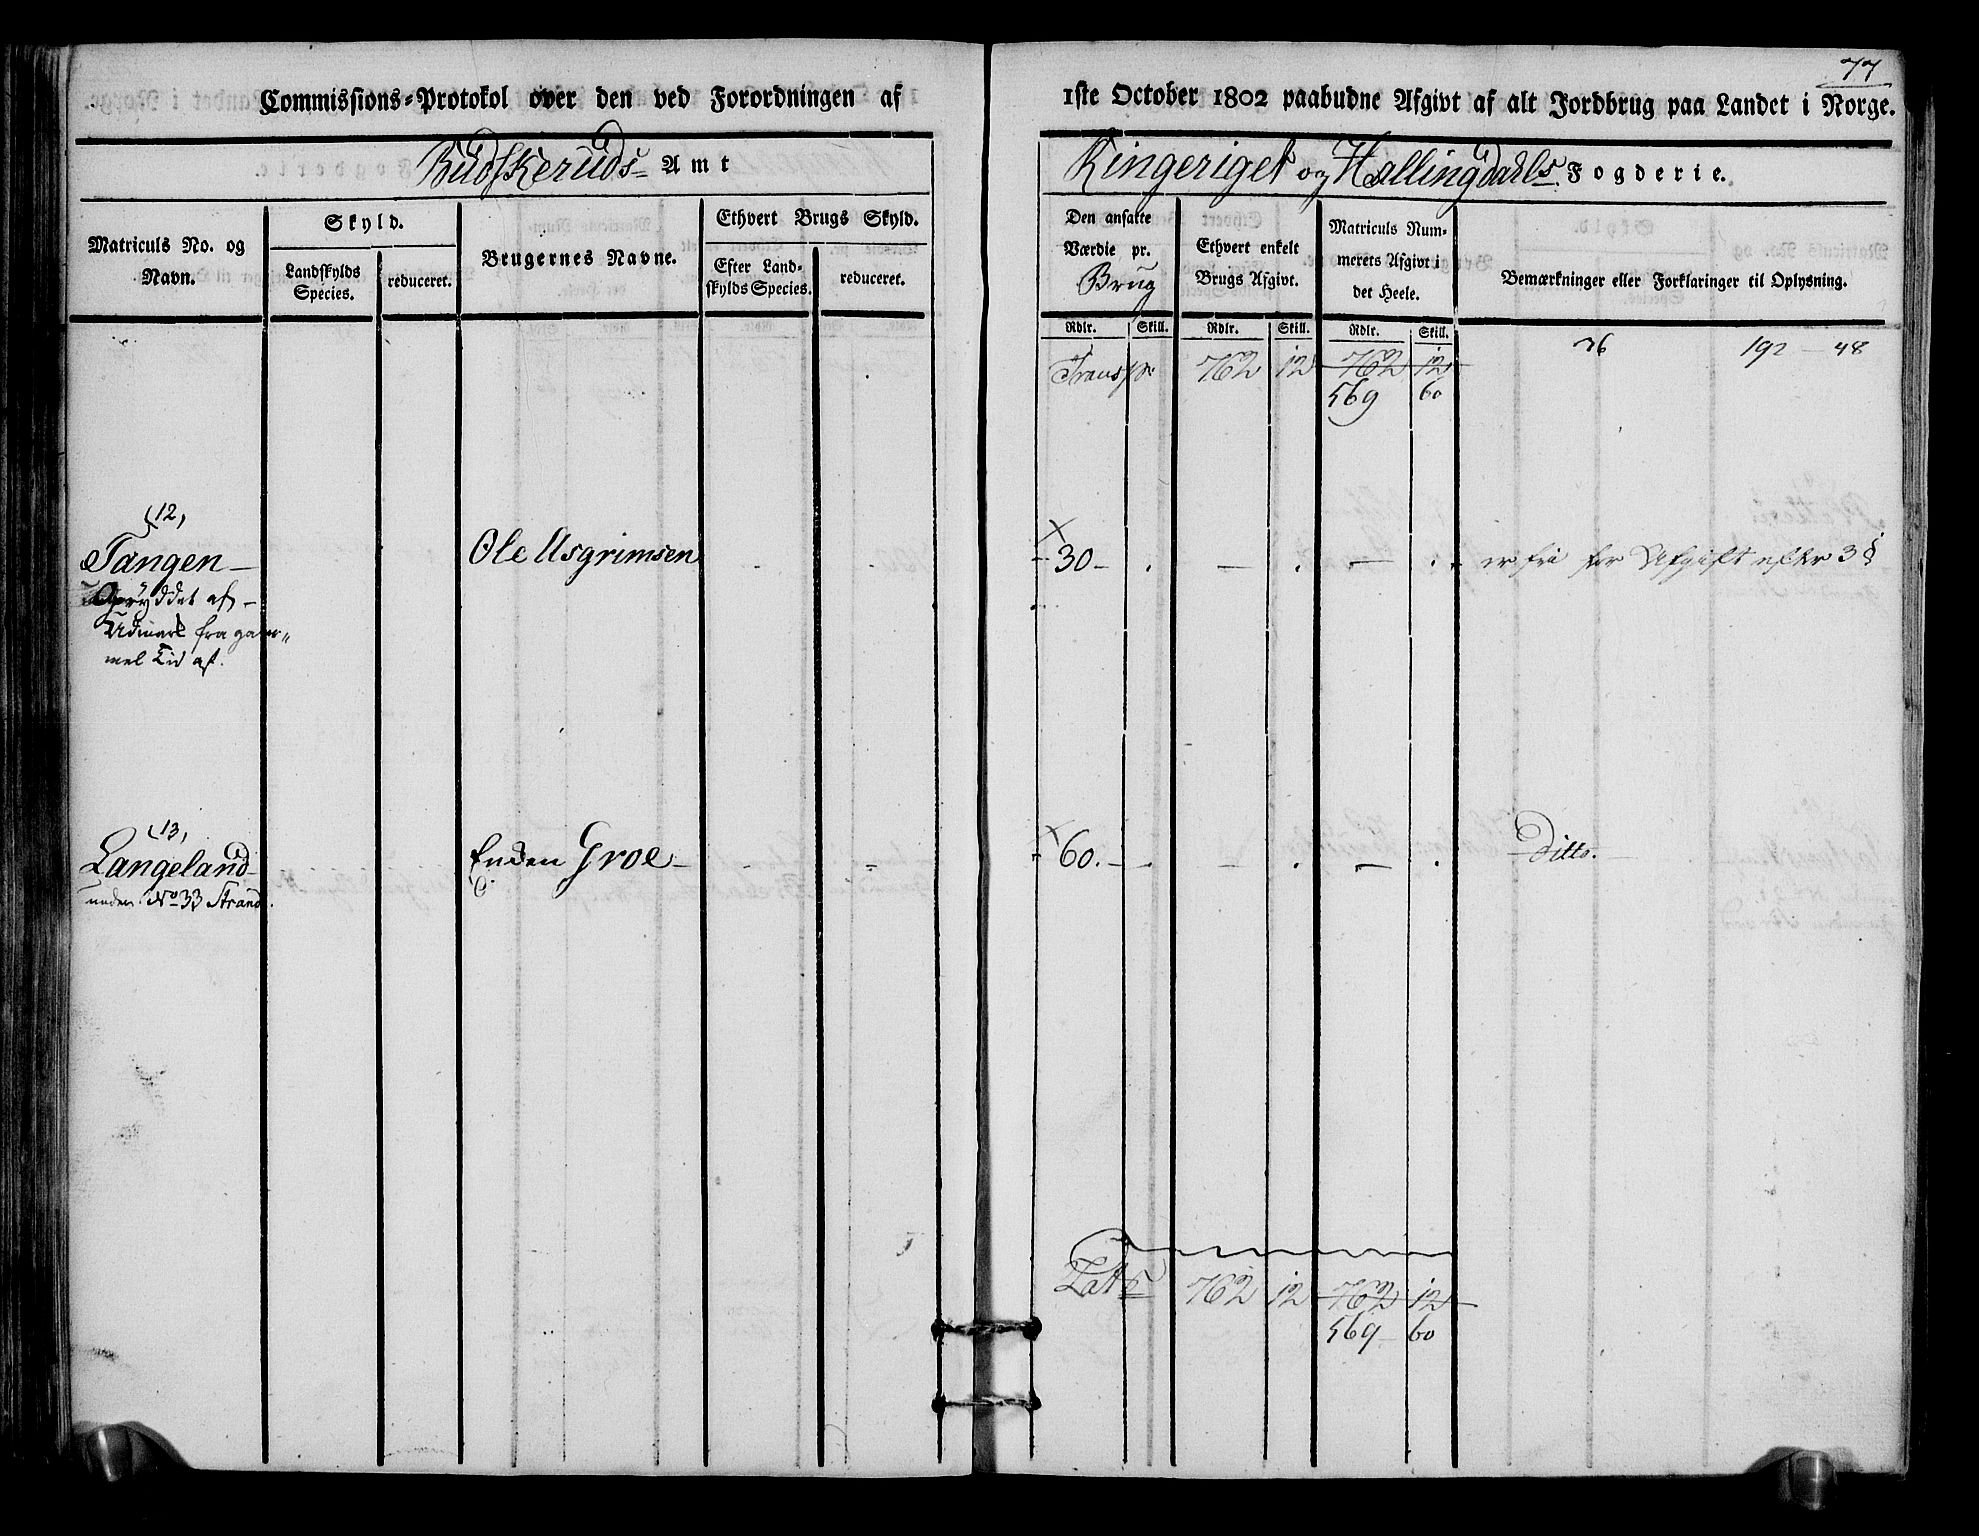 77
Commissions-Protokol over den ved Forordningen af 1ste October 1802 paabudne Afgivt af alt Jordbrug paa Landet i Norge.
Budskeruds Amt
Ringeriget og Hallingdahls Fogderie.
Matriculs No. og Navn.
Skyld.
Landskylds Species.
reduceret.
Brugernes Navne.
Ethvert Brugs Skyld.
Efter Landskylds Species.
reduceret.
Den ansatte Værdie pr. Brug
Ethvert enkelt Brugs Afgivt.
Matriculs Nummerets Afgivt i det Heele.
Bemærkninger eller Forklaringer til Oplysning.
Rdlr. Skill. Rdlr. Skill. Rdlr. Skill.
Transp 762 12 762 12
76 192 - 48
569 60
12,
Tangen - Ole Asgrimsen - 30 - . - . - . er fri for Afgift efter 3 §
Opryddet af -
Udmark fra gam-
mel Tid af.
13,
Langeland Enden Groe - 60. - . - . - . Ditto.
unden No 33 Strand.
Lat 762 12 762 12
569 60